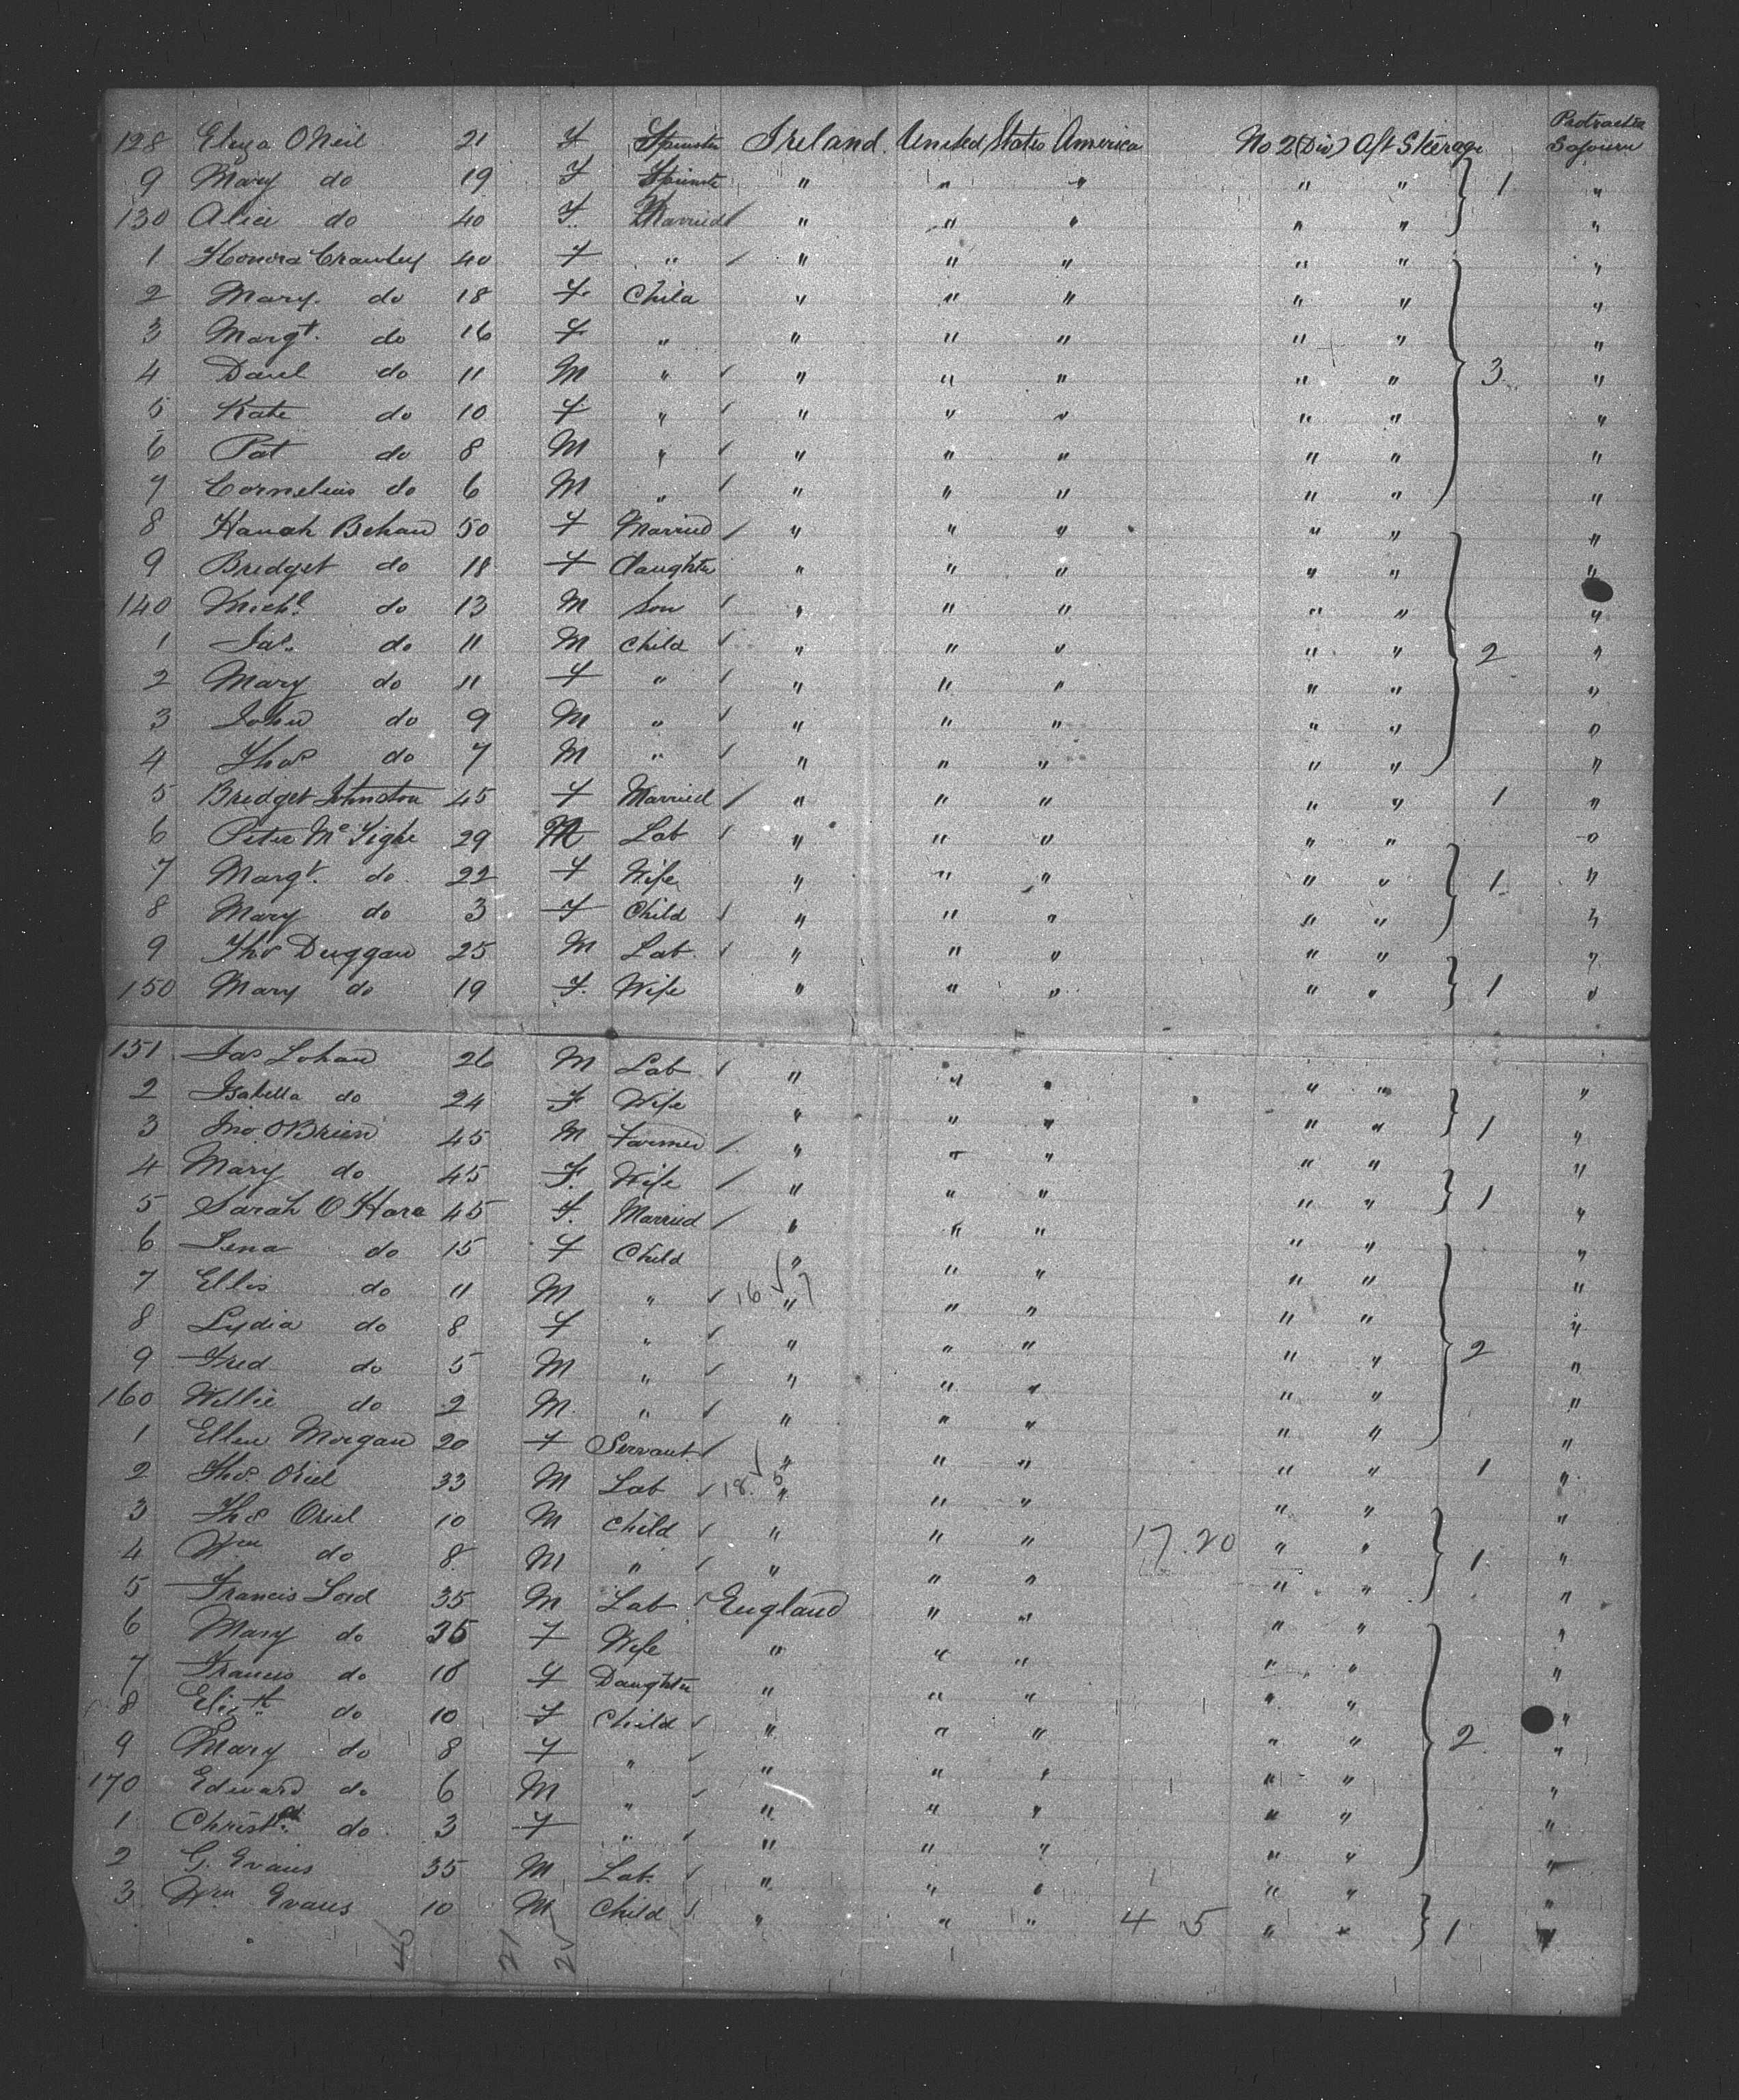 128 Eliza ONeil 21 F Spinster Ireland United States America No 2 (Div) Aft Steerage Protracted Sojourn
9 Mary do 19 F Spinster " " " " " 1 "
130 Alice do 40 F. Married " " " " " "
1 Honora Crawley 40 F " " " " " " "
2 Mary. do 18 F. Child " " " " " "
3 Margt. do 16 F " " " " " " "
4 Danl do 11 M " " " " " " 3 "
5 Kate do 10 F " " " " " " "
6 Pat do 8 M " " " " " " "
7 Cornelius do 6 M " " " " " " "
8 Hanah Behan 50 F Married " " " " " "
9 Bridget do 18 F daughter " " " " " "
140 Michl. do 13 M Son " " " " " "
1 Jas. do 11 M Child " " " " " 2 "
2 Mary do 11 F " " " " " " "
3 John do 9 M " " " " " " "
4 Thos do 7 M " " " " " " "
5 Bridget Johnston 45 F Married " " " " " 1 "
6 Peter Mc Tighe 29 M Lab " " " " " "
7 Margt. do. 22 F Wife " " " " " 1 "
8 Mary do 3 F Child " " " " " "
9 Thos Duggan 25 M Lab. " " " " " "
150 Mary do 19 F. Wife " " " " " 1 "
151 Jas Lohan 26 M Lab " " " " " "
2 Isabella do 24 F Wife " " " " " 1 "
3 Jno. OBrien 45 M Farmer " " " " " "
4 Mary do 45 F. Wife " " " " " 1 "
5 Sarah O Hare 45 F. Married " " " " " "
6 Lena do 15 F Child " " " " " "
7 Ellis do 11 M " 16 7 " " " " " "
8 Lydia do 8 F " " " " " " "
9 Fred do 5 M " " " " " " 2 "
160 Willie do 2 M. " " " " " " "
1 Ellen Morgan 20 F Servant " " " " " 1 "
2 Thos. Oriel 33 M Lab 18. 5 " " " " " "
3 Thos Oriel 10 M Child " " " 17.20 " " "
4 Wm do 8 M " " " " " " 1 "
5 Francis Lord 35 M Lab England " " " " "
6 Mary do 35 F Wife " " " " " "
7 Frances do 18 F Daughter " " " " " "
8 Elizth do 10 F Child " " " " " "
9 Mary do 8 F " " " " " " 2 "
170 Edward do 6 M " " " " " " "
1 do 3 F " " " " " " "
2 G. Evans 35 M Lab. " " " " " "
3 Wm Evans 10 M Child " " " 4 5 " " 1 "